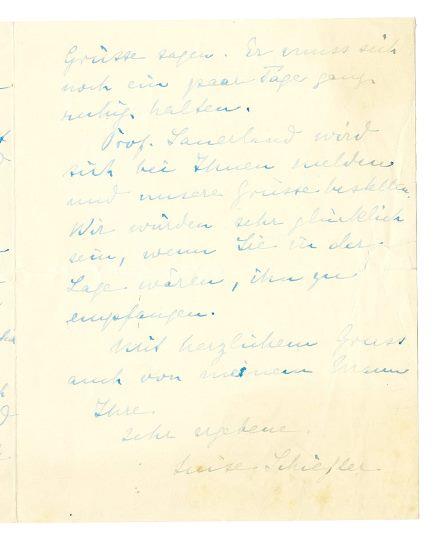 Grüsse sagen. Er muss sich
noch ein paar Tage ganz
ruhig halten.
Prof. Sauerland wird
sich bei Ihnen melden
und unsere Grüsse bestellen.
Wir würden sehr glücklich
sein, wenn Sie in der
Lage wären, ihn zu
empfangen.
Mit herzlichem Gruss
auch von meinem Mann
Ihre
sehr ergebene
Luise Schiefler